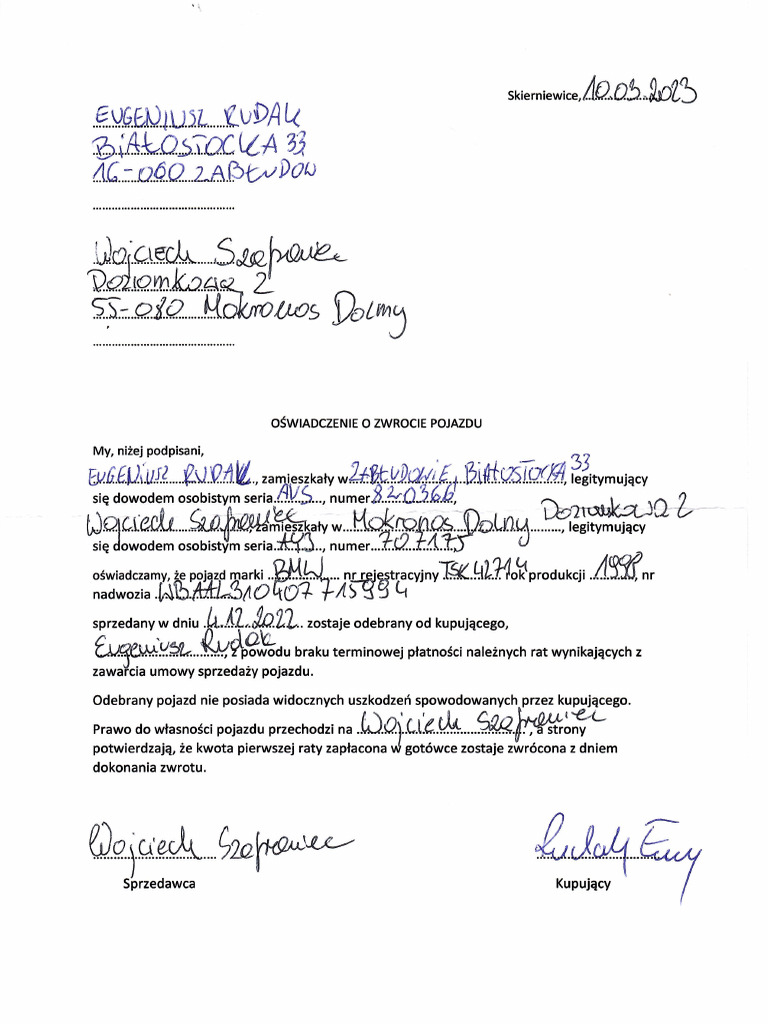 Skierniewice, 10.03.2023
EUGENIUSZ RUDAK
BIAŁOSTOCKA 33
16-060 ZABŁUDÓW
Wojciech Szafraniec
Poziomkowa 2
55-080 Mokronos Dolny
OŚWIADCZENIE O ZWROCIE POJAZDU
My, niżej podpisani,
EUGENIUSZ RUDAK, zamieszkały w ZABŁUDOWIE, BIAŁOSTOCKA 33, legitymujący
się dowodem osobistym seria AVS, numer 820366,
Wojciech Szafraniec, zamieszkały w Mokronos Dolny Poziomkowa 2, legitymujący
się dowodem osobistym seria, numer 707175
oświadczamy, że pojazd marki BMW nr rejestracyjny TSK 42714 rok produkcji 1998, nr
nadwozia WBAAL310407715994
sprzedany w dniu 4.12.2022 zostaje odebrany od kupującego,
Eugeniusz Rudak, z powodu braku terminowej płatności należnych rat wynikających z
zawarcia umowy sprzedaży pojazdu.
Odebrany pojazd nie posiada widocznych uszkodzeń spowodowanych przez kupującego.
Prawo do własności pojazdu przechodzi na Wojciech Szafraniec, a strony
potwierdzają, że kwota pierwszej raty zapłacona w gotówce zostaje zwrócona z dniem
dokonania zwrotu.
Wojciech Szafraniec
Sprzedawca Kupujący